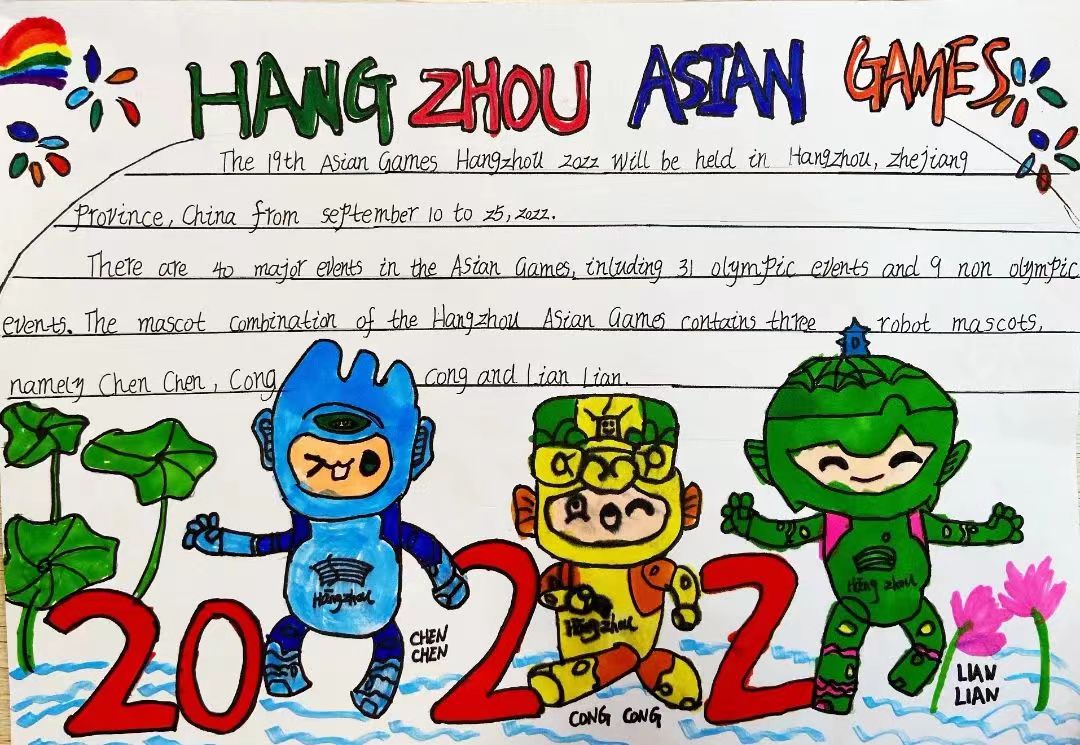 HANGZHOU ASIAN GAMES
The 19th Asian Games Hangzhou 2022 will be held in Hangzhou, zhejiang
Province, China from september 10 to 25, 2022.
There are 40 major events in the Asian Games, inluding 31 olympic events and 9 non olympic
events. The mascot combination of the Hangzhou Asian Games contains three robot mascots,
namely Chen Chen, Cong cong and Lian Lian.
Hangzhou
Hangzhou
Hangzhou
2022
CHEN
CHEN
CONG CONG
LIAN
LIAN